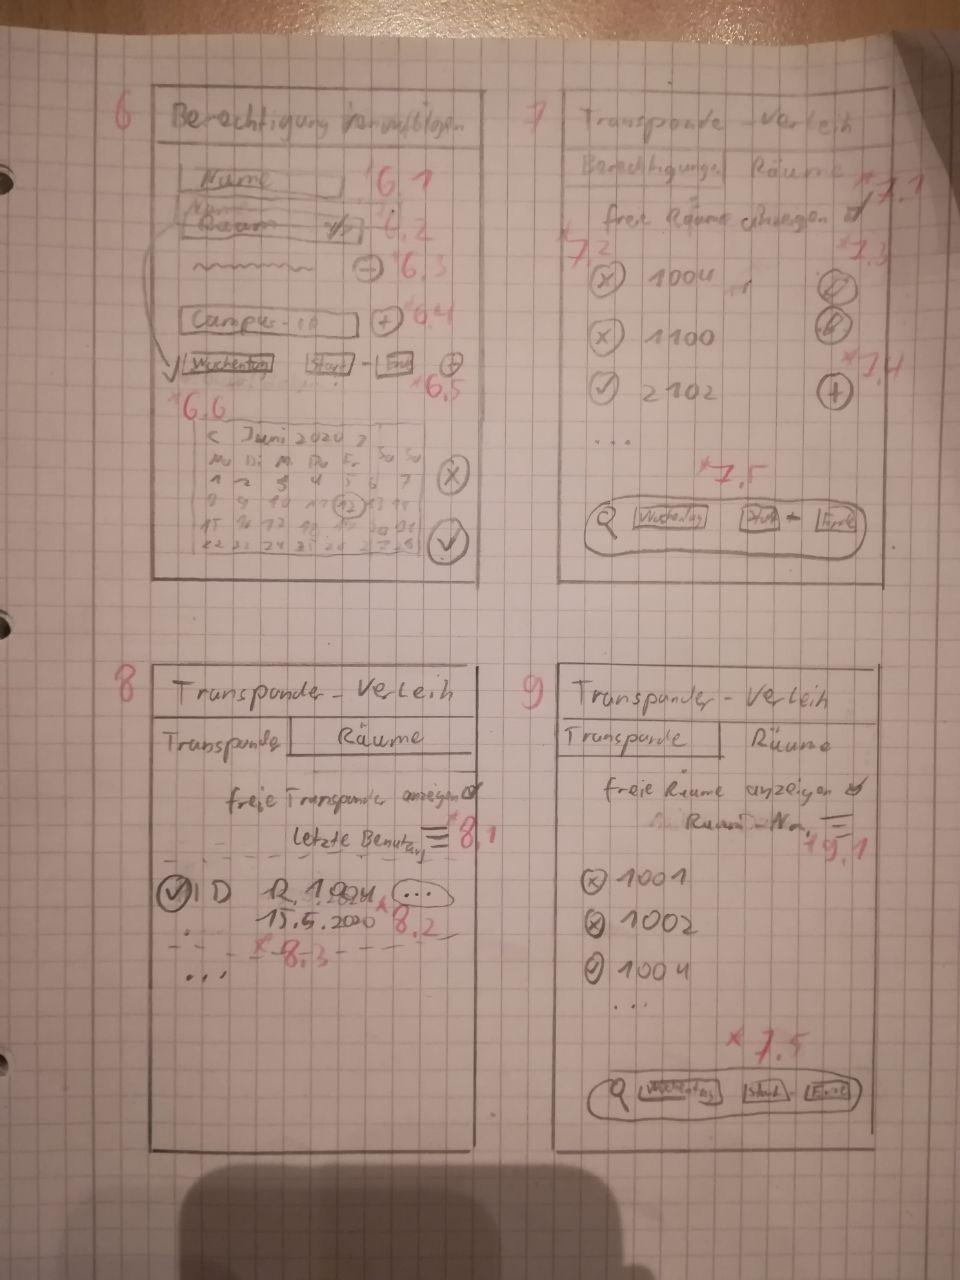 6
Berechtigung
Name *6.1
Raum *6.2
6.3
Campus-ID + 6.4
Wochentag Start - Ende +
*6.5
*6.6
< Juni 2020 >
Mo Di Mi Do Fr Sa So
1 2 3 4 5 6 7
8 9 10 11 12 13 14
15 16 17 18 19 20 21
22 23 24 25 26 27 28
7
Transponder-Verleih
Berechtigungen Räume
*7.1
freie Räume anzeigen
*7.2 *7.3
1004
1100
*7.4
2102 +
...
*7.5
Wochentag Start - Ende
8
Transponder-Verleih
Transponder Räume
freie Transponder anzeigen
letzte Benutzung *8.1
ID ...
15.5.2020 *8.2
*8.3
...
9
Transponder-Verleih
Transponder Räume
freie Räume anzeigen
Raum-Nr.
*9.1
1001
1002
1004
...
*7.5
Wochentag Start - Ende